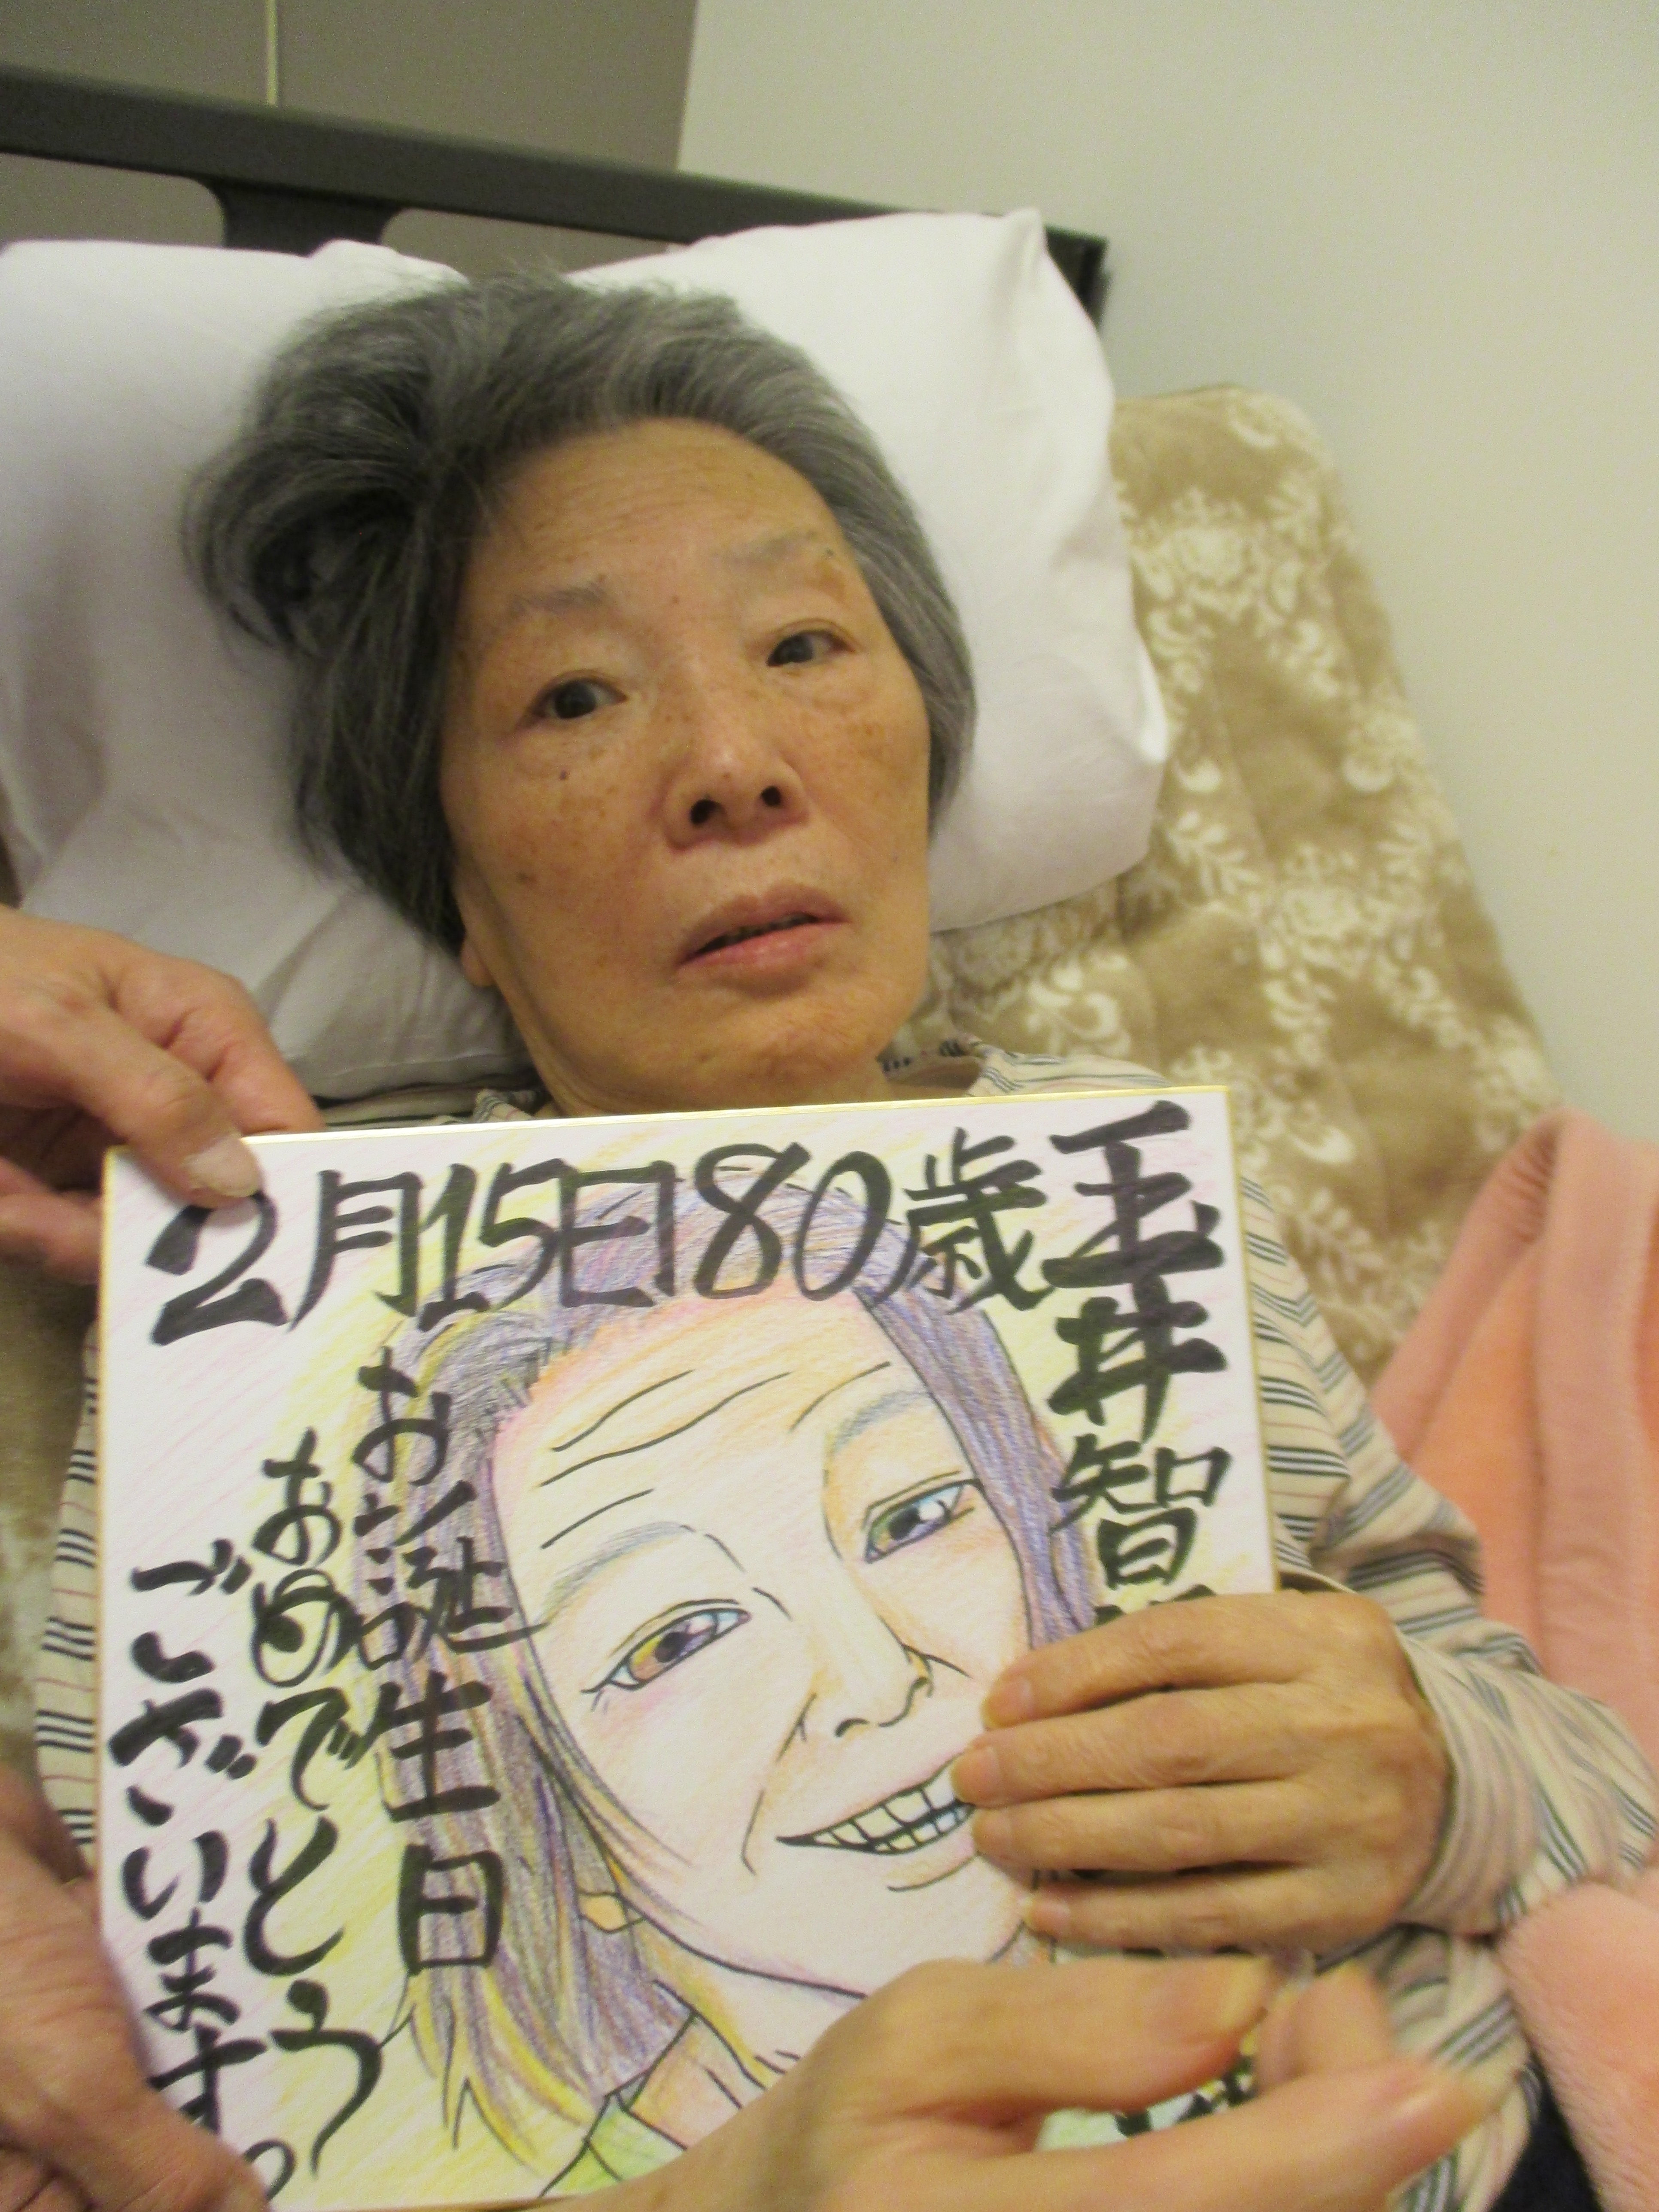 2月15日80歳
玉井智
お誕生日
おめでとう
ございます。